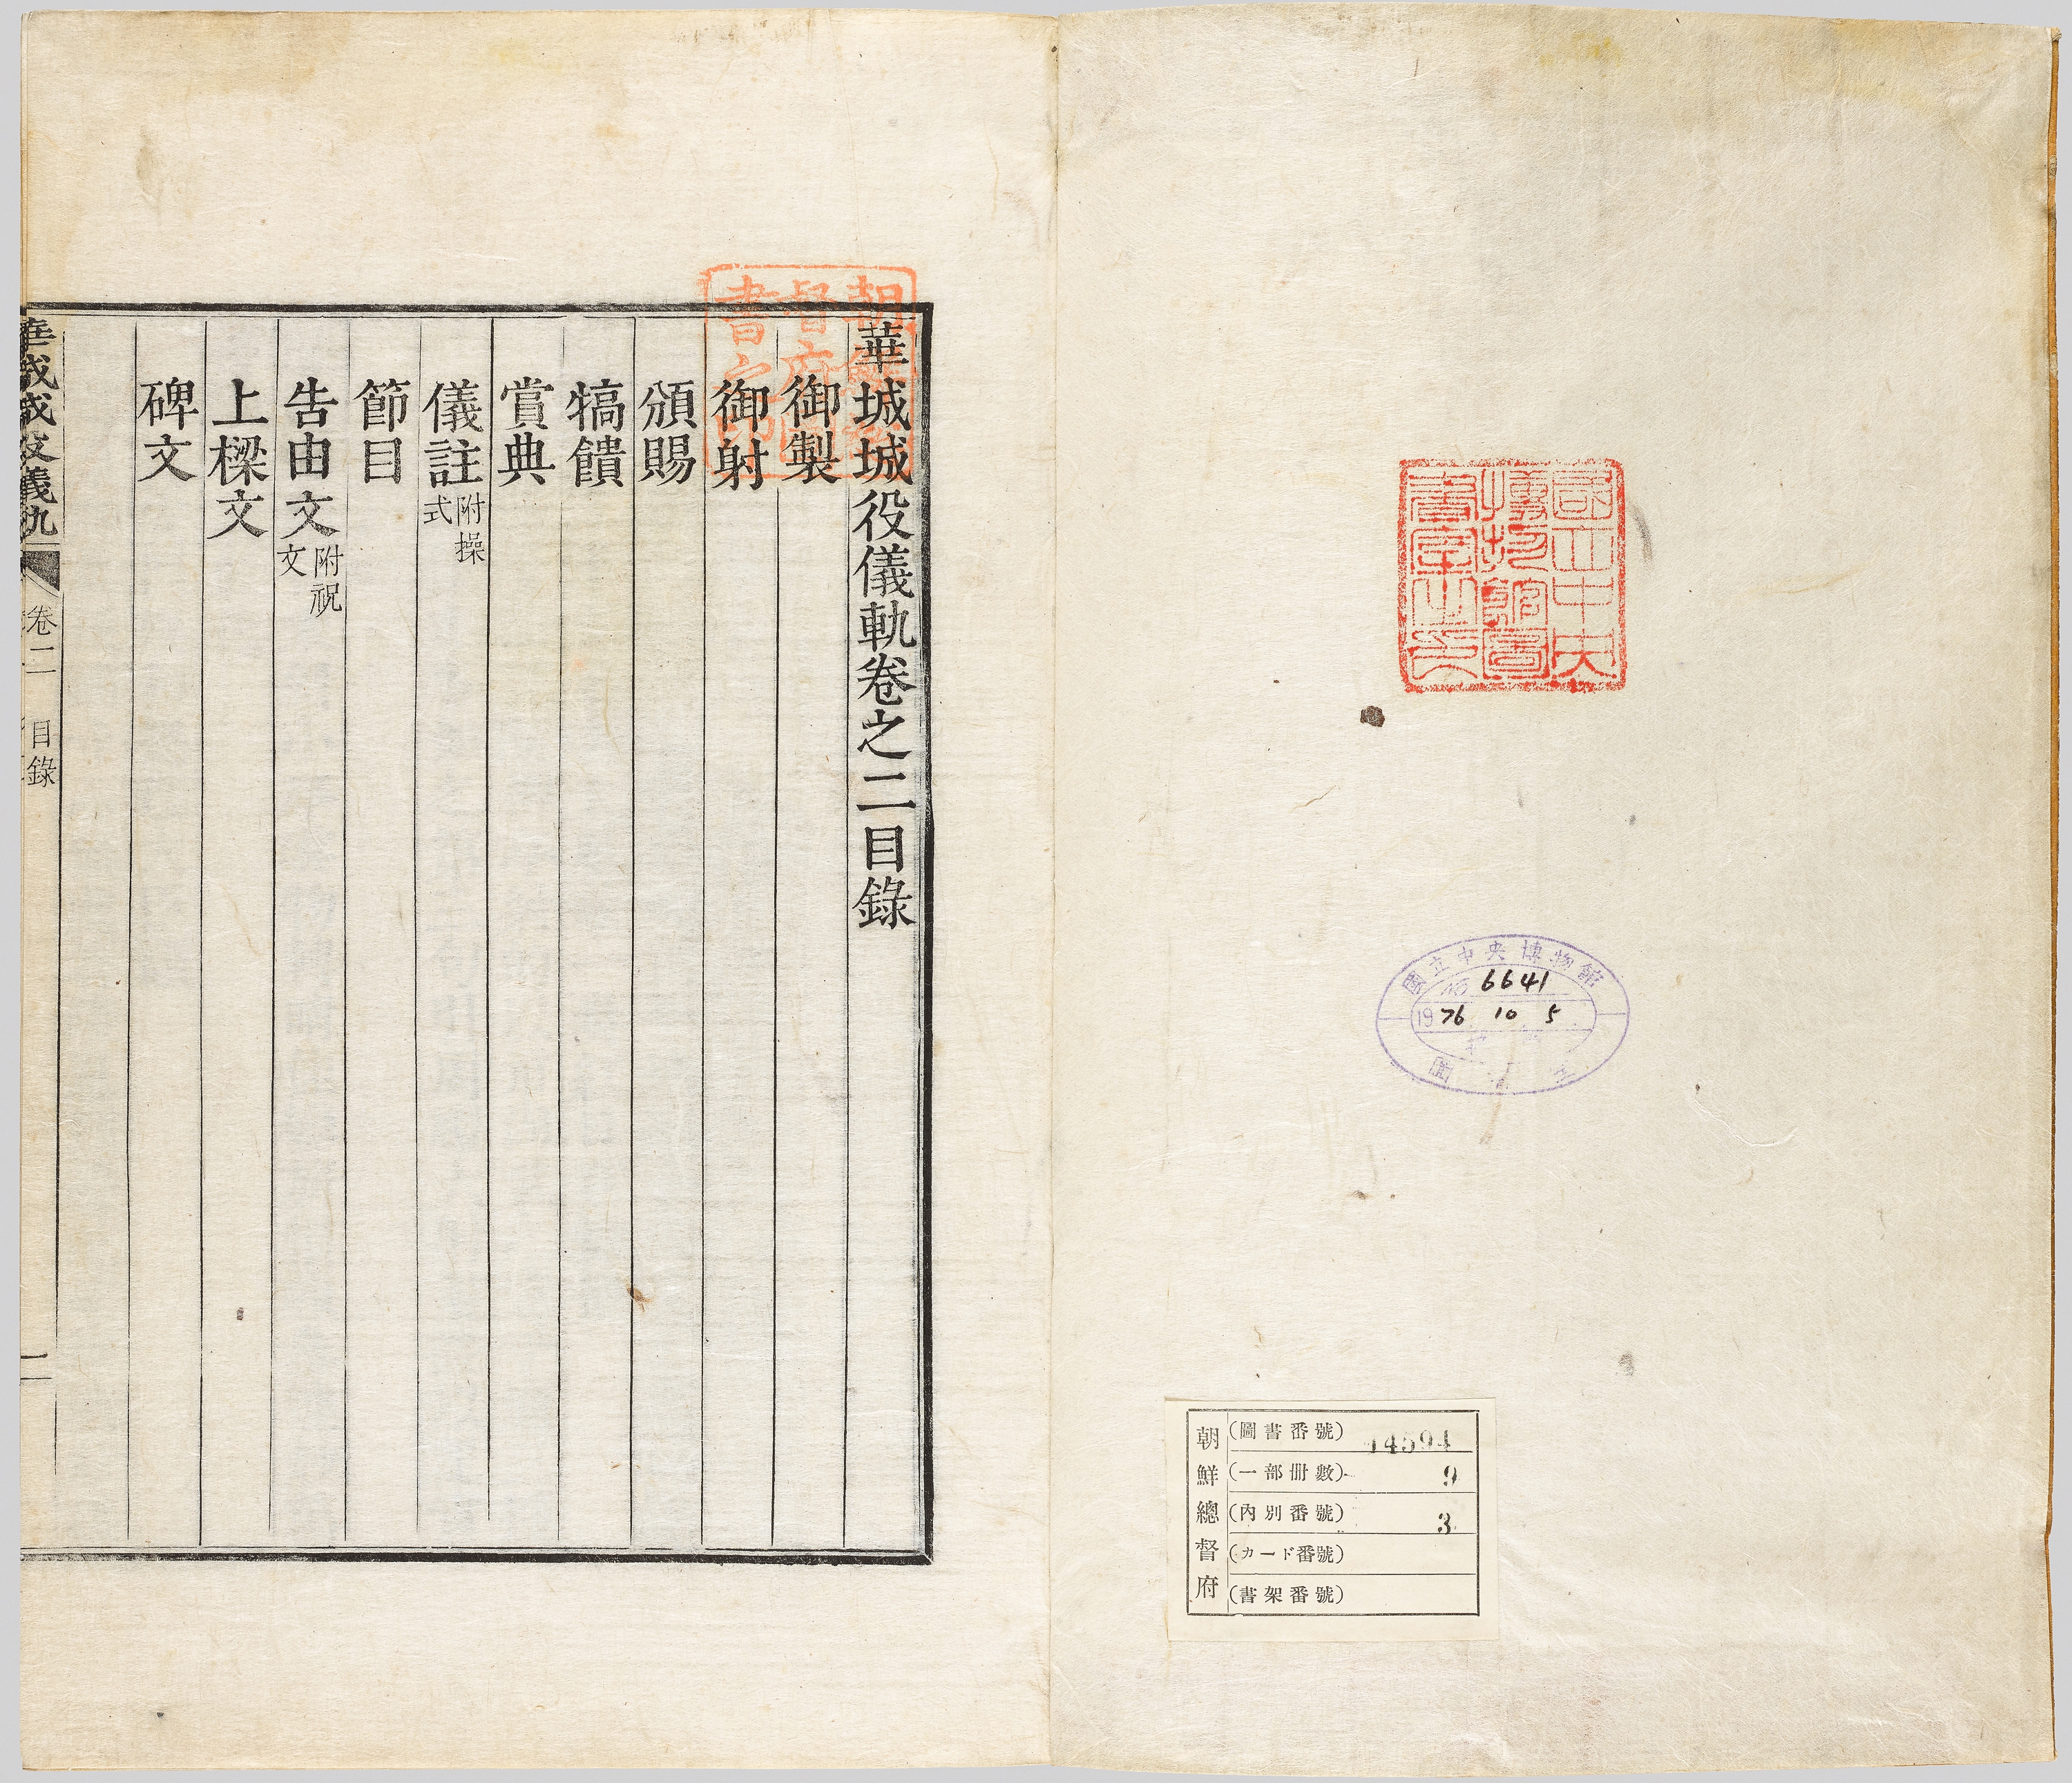 國立中央
博物館圖
書室之印
國立中央博物館
6641
1976 10 5
圖
朝鮮總督府
(圖書番號) 14594
(一部冊數) 9
(內別番號) 3
(カード番號)
(書架番號)
朝鮮總
督府圖
書
華城城役儀軌卷之二目錄
御製
御射
頒賜
犒饋
賞典
儀註 附操
式
節目
告由文 附祝
文
上樑文
碑文
華城城役儀軌 卷二 目錄 一